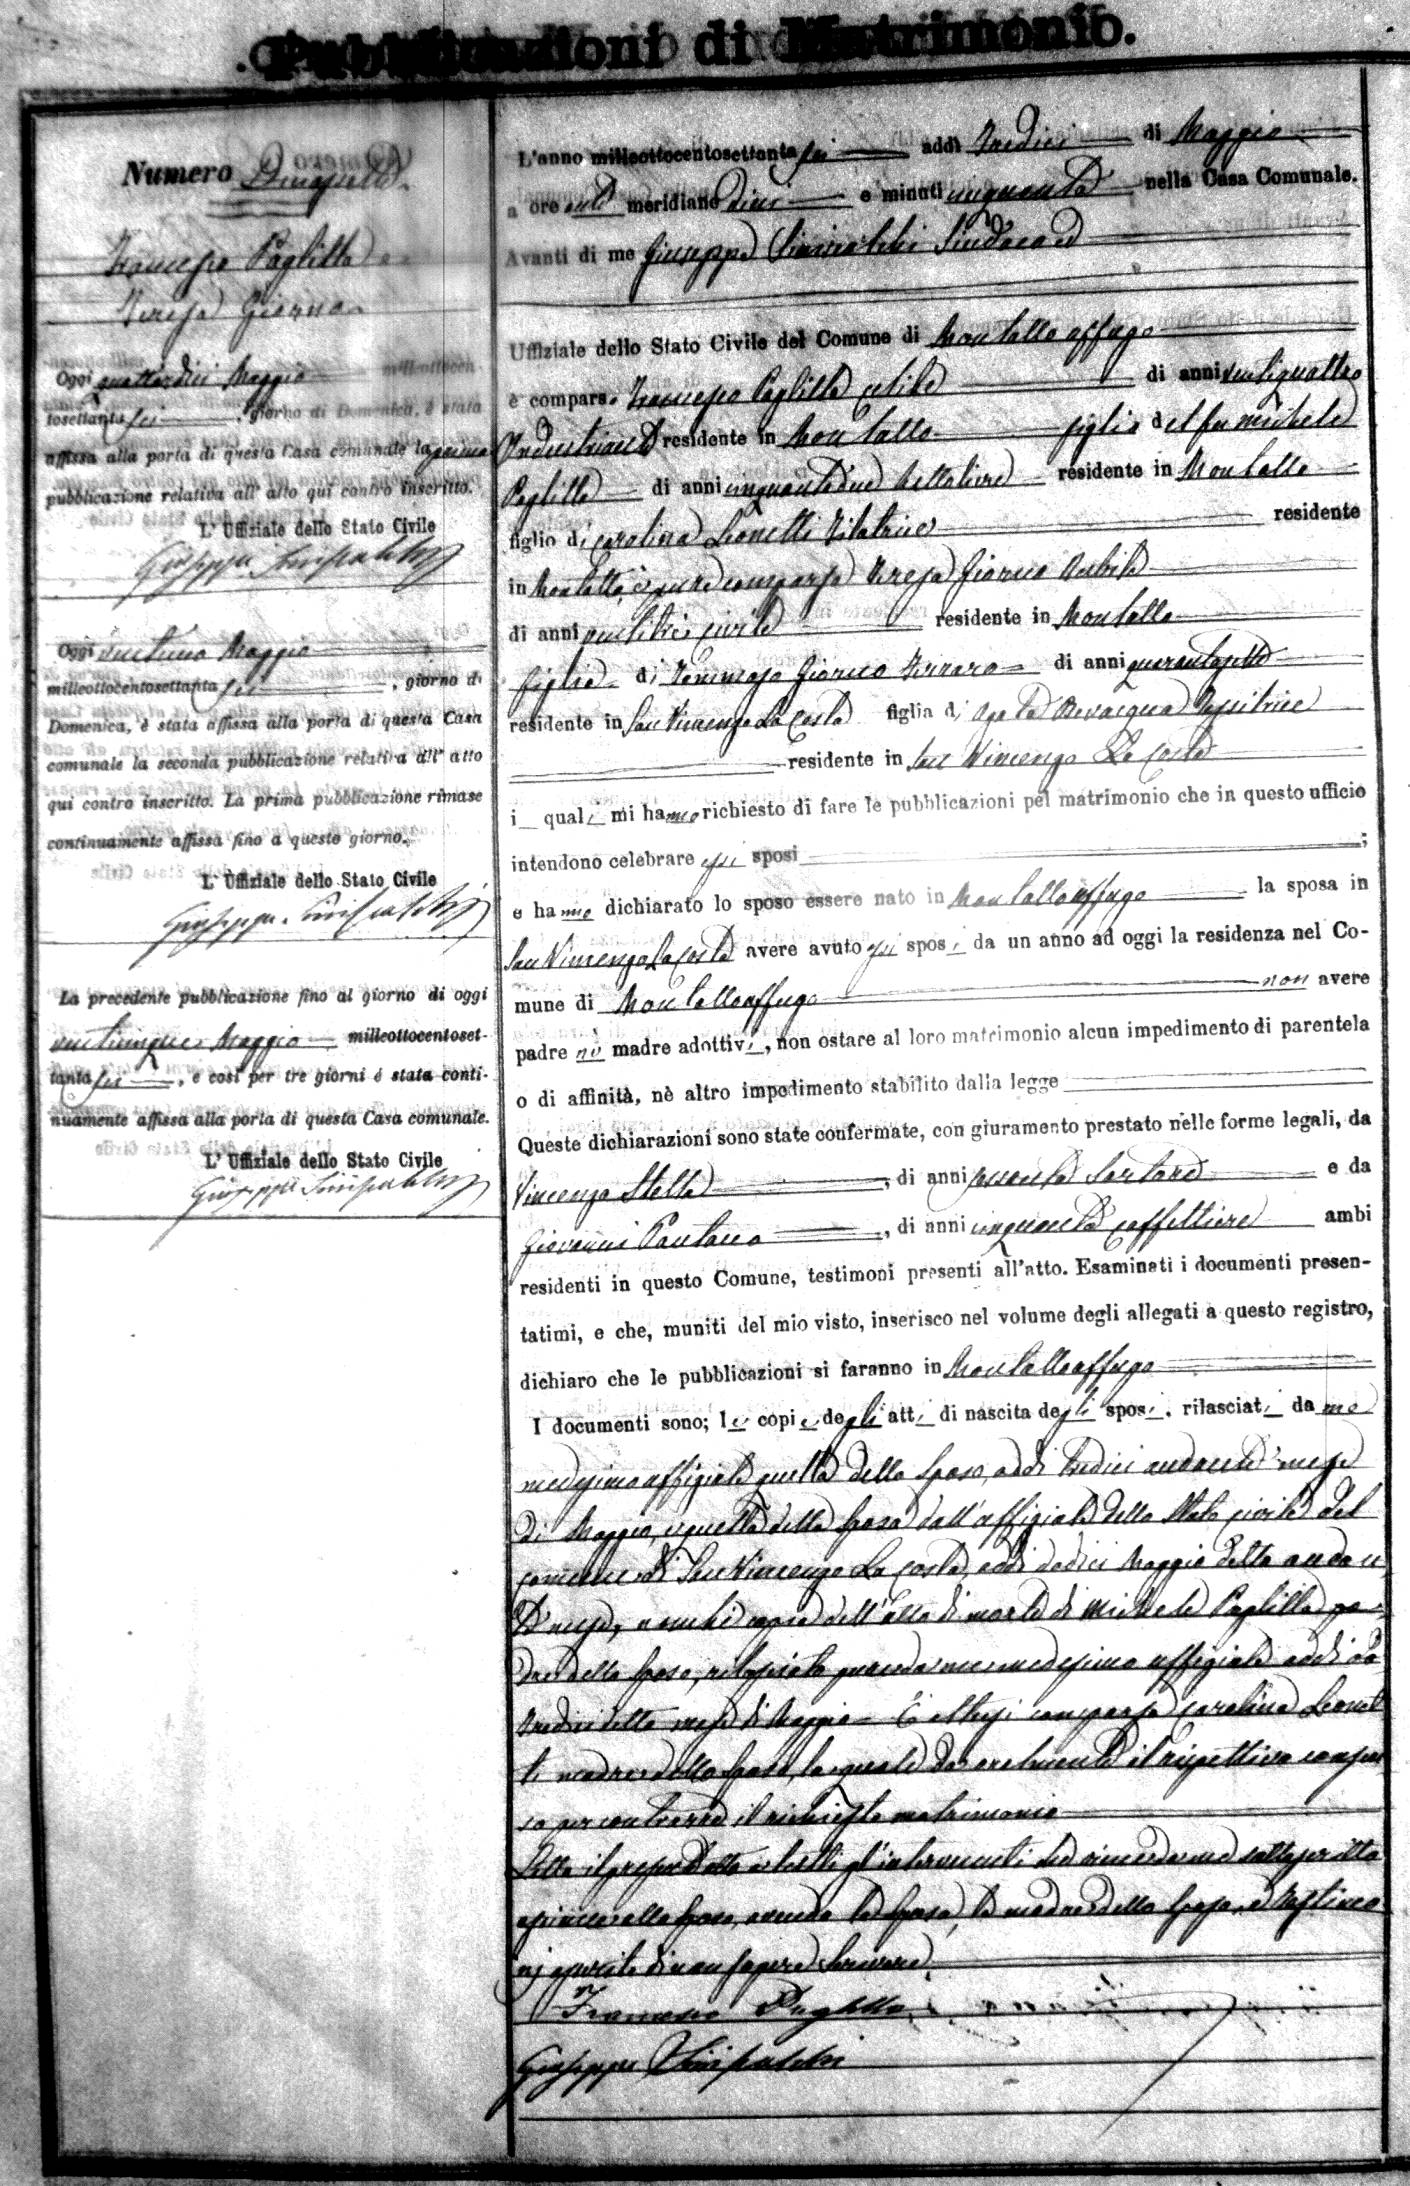 Pubblicazioni di Matrimonio.
Numero
Francesco Paglilla e
Teresa Giorno
Oggi quattordici Maggio milleottocen-
tosettanta sei, giorno di Domenica, è stata
affissa alla porta di questa Casa comunale la prima
pubblicazione relativa all' atto qui contro inscritto.
L' Uffiziale dello Stato Civile
Giuseppe
Oggi ventuno Maggio
milleottocentosettanta sei, giorno di
Domenica, è stata affissa alla porta di questa Casa
comunale la seconda pubblicazione relativa all' atto
qui contro inscritto. La prima pubblicazione rimase
continuamente affissa fino a questo giorno.
L' Uffiziale dello Stato Civile
Giuseppe
La precedente pubblicazione fino al giorno di oggi
Maggio milleottocentoset-
tanta sei, e così per tre giorni è stata conti-
nuamente affissa alla porta di questa Casa comunale.
L' Uffiziale dello Stato Civile
Giuseppe
L'anno milleottocentosettanta sei addì tredici di Maggio
a ore anti meridiane dieci e minuti cinquanta nella Casa Comunale.
Avanti di me Giuseppe Sindaco
Uffiziale dello Stato Civile del Comune di Montalto uffugo
è comparso Francesco Paglilla celibe di anni ventiquattro
residente in Montalto figlio del fu Michele
Paglilla di anni cinquantadue residente in Montalto
figlio di Carolina Leonetti filatrice residente
in Montalto, è pure comparsa Teresa Giorno nubile
di anni ventitre civile residente in Montalto
figlia di Tommaso Giorno di anni quarantasette
residente in San Vincenzo La Costa figlia di Agata Bevacqua
residente in San Vincenzo La Costa
i quali mi hanno richiesto di fare le pubblicazioni pel matrimonio che in questo ufficio
intendono celebrare essi sposi ;
e hanno dichiarato lo sposo essere nato in Montalto uffugo la sposa in
San Vincenzo La Costa avere avuto essi sposi da un anno ad oggi la residenza nel Co-
mune di Montalto uffugo non avere
padre nè madre adottivi, non ostare al loro matrimonio alcun impedimento di parentela
o di affinità, nè altro impedimento stabilito dalla legge
Queste dichiarazioni sono state confermate, con giuramento prestato nelle forme legali, da
Vincenzo Stella, di anni sessanta sartore e da
Giovanni Pantano, di anni cinquanta caffettiere ambi
residenti in questo Comune, testimoni presenti all'atto. Esaminati i documenti presen-
tatimi, e che, muniti del mio visto, inserisco nel volume degli allegati a questo registro,
dichiaro che le pubblicazioni si faranno in Montalto uffugo
I documenti sono; le copie degli atti di nascita degli sposi, rilasciati da me
medesimo uffiziale quella dello sposo, addì tredici andante mese
di Maggio, e quella della sposa dall'uffiziale dello Stato civile del
comune di San Vincenzo La Costa, addì dodici Maggio detto
mese, copia dell'atto di morte di Michele Paglilla pa-
dre dello sposo, rilasciata medesimo uffiziale addì
tredici detto mese di Maggio È altresì comparsa Carolina Leonet
ti madre dello sposo, la quale dà oralmente il rispettivo consen
so per contrarre il richiesto matrimonio
Letto il presente atto a tutti gl'intervenuti sottoscritto
allo sposo, avendo la sposa, la madre dello sposo, e testimo
nj asserito di non sapere scrivere
Francesco Paglilla
Giuseppe